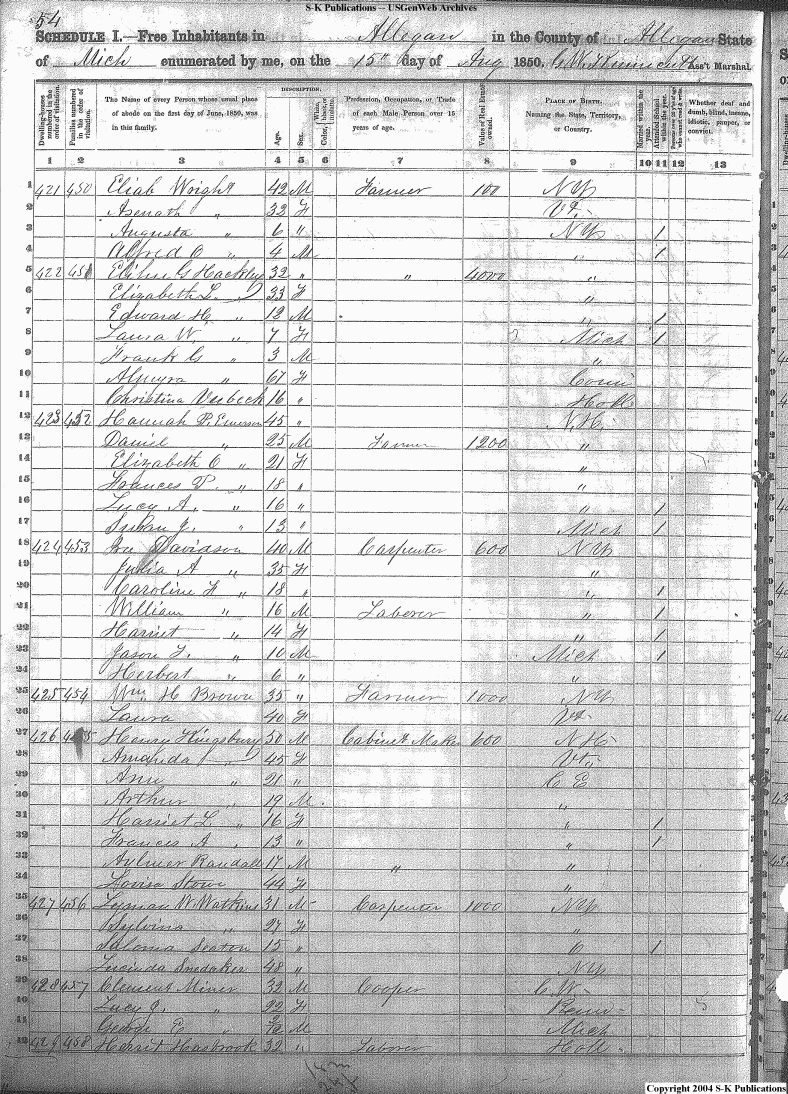 S-K Publications – USGenWeb Archives
54
SCHEDULE I.—Free Inhabitants in Allegan in the County of Allegan State
of Mich enumerated by me, on the 15th day of Aug 1850. Ass't Marshal.
Dwelling-houses numbered in the order of visitation. Families numbered in the order of visitation. The Name of every Person whose usual place of abode on the first day of June, 1850, was in this family. DESCRIPTION. Age. Sex. Color, White, black, or mulatto. Profession, Occupation, or Trade of each Male Person over 15 years of age. Value of Real Estate owned. PLACE OF BIRTH. Naming the State, Territory, or Country. Married within the year. Attended School within the year. Persons over 20 y'rs of age who cannot read & write. Whether deaf and dumb, blind, insane, idiotic, pauper, or convict.
1 2 3 4 5 6 7 8 9 10 11 12 13
1 421 450 Eliab Wright 42 M Farmer 100 NY
2 Asenath " 32 F Vt.
3 Augusta " 6 " NY 1
4 Alfred O " 4 M " 1
5 422 451 Elihu G Hackley 32 " " 4000 "
6 Elizabeth L. " 33 F "
7 Edward H " 12 M " 1
8 Laura W " 7 F Mich 1
9 Frank G " 3 M "
10 " 67 F Conn
11 Christina 16 " Holl
12 423 452 Hannah P. Emerson 45 " N.H.
13 Daniel " 25 M Farmer 1200 "
14 Elizabeth O " 21 F "
15 Frances P. " 18 " "
16 Lucy A. " 16 " " 1
17 J. " 13 " Mich 1
18 424 453 Davidson 40 M Carpenter 600 NY
19 Julia A " 35 F "
20 Caroline F " 18 " " 1
21 William " 16 M Laborer " 1
22 Harriet " 14 F " 1
23 Jason " 10 M Mich 1
24 Herbert " 6 " "
25 425 454 Wm H Brown 35 " Farmer 1000 NY
26 Laura 40 F Vt
27 426 455 Henry Kingsbury 50 M Cabinet Maker 600 N H
28 Amanda " 45 F Vt
29 Ann " 21 " C E
30 Arthur " 19 M "
31 Harriet L " 16 F " 1
32 Frances A " 13 " " 1
33 Aulmer Randall 17 M " "
34 Lovisa Stowe 44 F "
35 427 456 Lyman W Watkins 31 M Carpenter 1000 NY
36 Sylvina " 27 F "
37 Saloma Seaton 15 " O 1
38 Lucinda Snedaker 48 " NY
39 428 457 Clement Miner 32 M Cooper C.W.
40 Lucy J. " 22 F Penn
41 George E " M Mich
42 429 458 Hasbrook 32 " Laborer Holl
Copyright 2004 S-K Publications